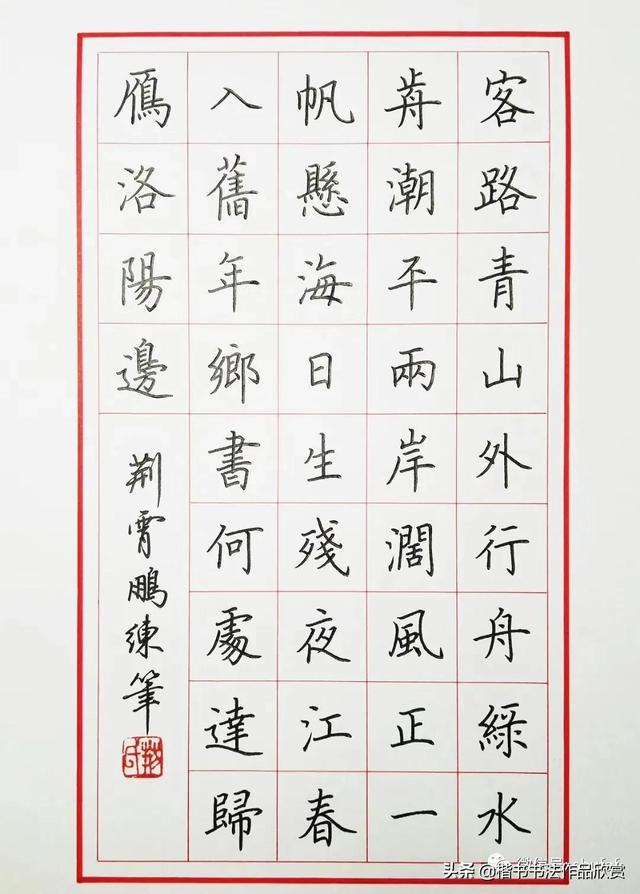 客路青山外行舟綠水
歬潮平兩岸濶風正一
帆懸海日生殘夜江春
入舊年鄉書何處達歸
鴈洛陽邊
荆霄鵬練筆
头条@楷书书法作品欣赏